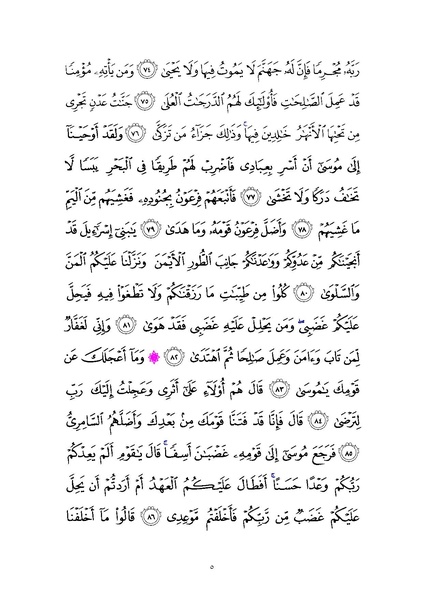 رَبَّهُۥ مُجْرِمًا فَإِنَّ لَهُۥ جَهَنَّمَ لَا يَمُوتُ فِيهَا وَلَا يَحْيَىٰ ٧٤ وَمَن يَأْتِهِۦ مُؤْمِنًا
قَدْ عَمِلَ ٱلصَّٰلِحَٰتِ فَأُو۟لَٰٓئِكَ لَهُمُ ٱلدَّرَجَٰتُ ٱلْعُلَىٰ ٧٥ جَنَّٰتُ عَدْنٍ تَجْرِى
مِن تَحْتِهَا ٱلْأَنْهَٰرُ خَٰلِدِينَ فِيهَا ۚ وَذَٰلِكَ جَزَآءُ مَن تَزَكَّىٰ ٧٦ وَلَقَدْ أَوْحَيْنَآ
إِلَىٰ مُوسَىٰٓ أَنْ أَسْرِ بِعِبَادِى فَٱضْرِبْ لَهُمْ طَرِيقًا فِى ٱلْبَحْرِ يَبَسًا لَّا
تَخَٰفُ دَرَكًا وَلَا تَخْشَىٰ ٧٧ فَأَتْبَعَهُمْ فِرْعَوْنُ بِجُنُودِهِۦ فَغَشِيَهُم مِّنَ ٱلْيَمِّ
مَا غَشِيَهُمْ ٧٨ وَأَضَلَّ فِرْعَوْنُ قَوْمَهُۥ وَمَا هَدَىٰ ٧٩ يَٰبَنِىٓ إِسْرَٰٓءِيلَ قَدْ
أَنجَيْنَٰكُم مِّنْ عَدُوِّكُمْ وَوَٰعَدْنَٰكُمْ جَانِبَ ٱلطُّورِ ٱلْأَيْمَنَ وَنَزَّلْنَا عَلَيْكُمُ ٱلْمَنَّ
وَٱلسَّلْوَىٰ ٨٠ كُلُوا۟ مِن طَيِّبَٰتِ مَا رَزَقْنَٰكُمْ وَلَا تَطْغَوْا۟ فِيهِ فَيَحِلَّ
عَلَيْكُمْ غَضَبِى ۖ وَمَن يَحْلِلْ عَلَيْهِ غَضَبِى فَقَدْ هَوَىٰ ٨١ وَإِنِّى لَغَفَّارٌ
لِّمَن تَابَ وَءَامَنَ وَعَمِلَ صَٰلِحًا ثُمَّ ٱهْتَدَىٰ ٨٢ ۞ وَمَآ أَعْجَلَكَ عَن
قَوْمِكَ يَٰمُوسَىٰ ٨٣ قَالَ هُمْ أُو۟لَآءِ عَلَىٰٓ أَثَرِى وَعَجِلْتُ إِلَيْكَ رَبِّ
لِتَرْضَىٰ ٨٤ قَالَ فَإِنَّا قَدْ فَتَنَّا قَوْمَكَ مِنۢ بَعْدِكَ وَأَضَلَّهُمُ ٱلسَّامِرِىُّ
٨٥ فَرَجَعَ مُوسَىٰٓ إِلَىٰ قَوْمِهِۦ غَضْبَٰنَ أَسِفًا ۚ قَالَ يَٰقَوْمِ أَلَمْ يَعِدْكُمْ
رَبُّكُمْ وَعْدًا حَسَنًا ۚ أَفَطَالَ عَلَيْكُمُ ٱلْعَهْدُ أَمْ أَرَدتُّمْ أَن يَحِلَّ
عَلَيْكُمْ غَضَبٌ مِّن رَّبِّكُمْ فَأَخْلَفْتُم مَّوْعِدِى ٨٦ قَالُوا۟ مَآ أَخْلَفْنَا
٥